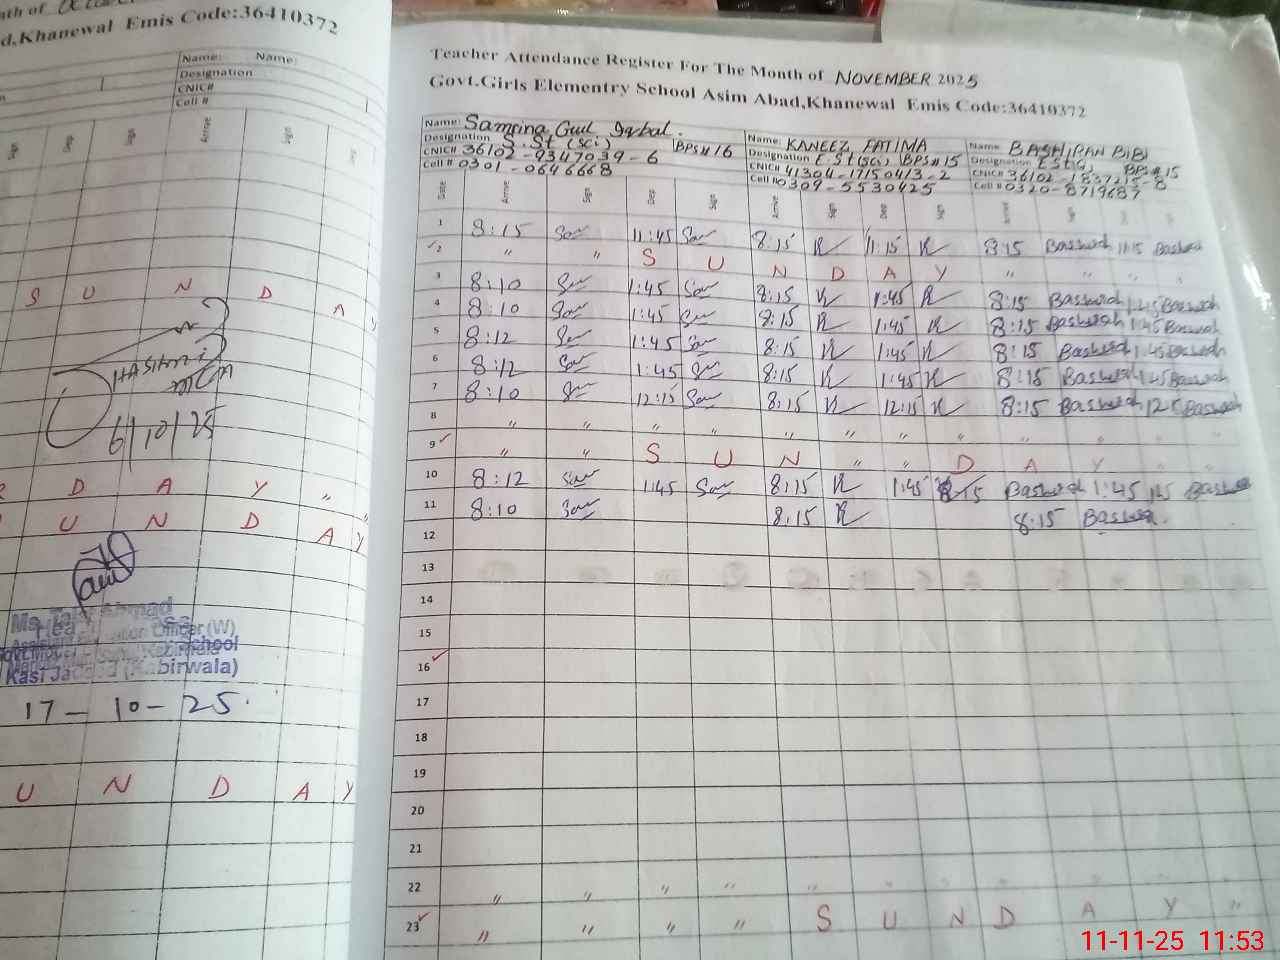 d,Khanewal Emis Code:36410372
Name: Name:
Designation
CNIC#
Cell #
Sign Dep Sign Arrive Sign Dep
S U N D A Y
HASHMI
6/10/25
D A Y "
U N D A Y
Ahmad
Officer (W)
School
Kasi (Kabirwala)
17-10-25.
U N D A Y
Teacher Attendance Register For The Month of NOVEMBER 2025
Govt.Girls Elementry School Asim Abad,Khanewal Emis Code:36410372
Name: Samrina Gul Iqbal. Name: KANEEZ FATIMA Name: BASHIRAN BIBI
Designation S.St (sci) BPS#16 Designation E.St(sci) BPS#15 Designation EST BPS#15
CNIC# 36102-9347039-6 CNIC# 41304-17150413-2 CNIC# 36102-1837215-8
Cell # 0301-0646668 Cell # 0309-5530425 Cell # 0320-8719687
Date Arrive Sign Dep Sign Arrive Sign Dep Sign Arrive Sign
1 8:15 Sam 11:45 Sam 8:15 K 11:15 K 8:15 Bashirah 11:15 Bashirah
2 " " S U N D A Y " " " "
3 8:10 Sam 1:45 Sam 8:15 K 1:45 K 8:15 Bashirah 1:45 Bashirah
4 8:10 Sam 1:45 Sam 8:15 K 1:45 K 8:15 Bashirah 1:45 Bashirah
5 8:12 Sam 1:45 Sam 8:15 K 1:45 K 8:15 Bashirah 1:45 Bashirah
6 8:12 Sam 1:45 Sam 8:15 K 1:45 K 8:15 Bashirah 1:45 Bashirah
7 8:10 Sam 12:15 Sam 8:15 K 12:15 K 8:15 Bashirah 12:15 Bashirah
8 " " " " " " " " " " " "
9 " " S U N " " D A Y " "
10 8:12 Sam 1:45 Sam 8:15 K 1:45 8:15 Bashirah 1:45 Bashirah
11 8:10 Sam 8.15 K 8.15 Bashirah
12
13
14
15
16
17
18
19
20
21
22 " " " " " " " " " " "
23 " " " " S U N D A Y "
11-11-25 11:53